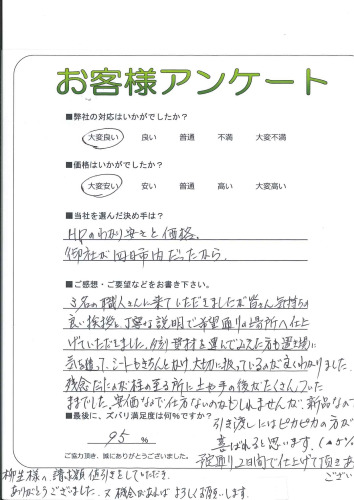 お客様アンケート
■弊社の対応はいかがでしたか?
大変良い 良い 普通 不満 大変不満
■価格はいかがでしたか?
大変安い 安い 普通 高い 大変高い
■当社を選んだ決め手は?
HPのわかり安さと価格。
御社が四日市内だったから。
■ご感想・ご要望などをお書き下さい。
3名の職人さんに来ていただきましたが皆さん気持ちの
良い挨拶と丁寧な説明で希望通りの場所へ仕上
げていただきました。
気を遣って、シートもきちんとかけ大切に扱っているのが良くわかりました。
残念だったのが柱の至る所に土や手の後がたくさんついた
ままでした。安価なので仕方ないのかもしれませんが、新品なので
■最後に、ズバリ満足度は何%ですか?
引き渡しにはピカピカの方が
喜ばれると思います。
95 %
ご協力頂き、誠にありがとうございました。
予定通り2日間で仕上げて頂きあ
柳生様の、請求額値引きをしていただき、
ありがとうございました。又機会があればよろしくお願いします。